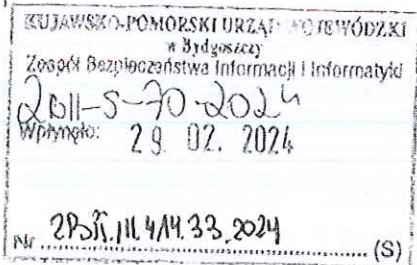 KUJAWSKO-POMORSKI URZĄD WOJEWÓDZKI
w Bydgoszczy
Zespół Bezpieczeństwa Informacji i Informatyki
ZBII-S-70-2024
Wpłynęło: 29. 02. 2024
Nr ZBII.III.414.33.2024 (S)